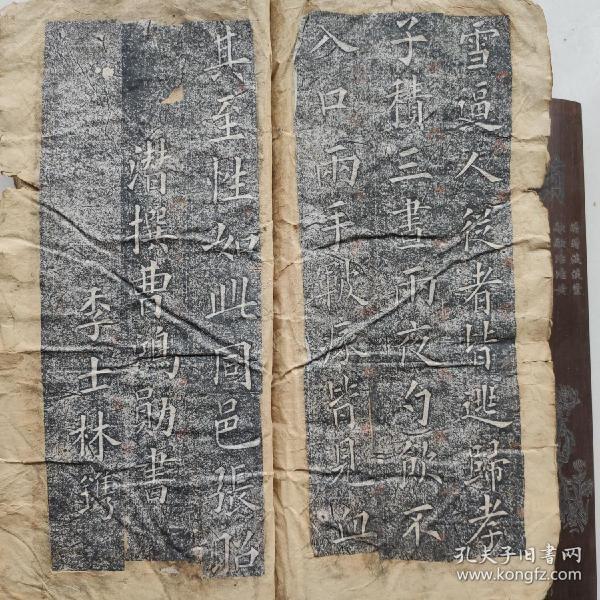 雪逼人從者皆逃歸孝
子積三晝兩夜勺飲不
入口兩手皸瘃皆見血
其至性如此同邑張貽
潛撰曹鴻勛書
李士林鐫
孔夫子旧书网
www.kongfz.com